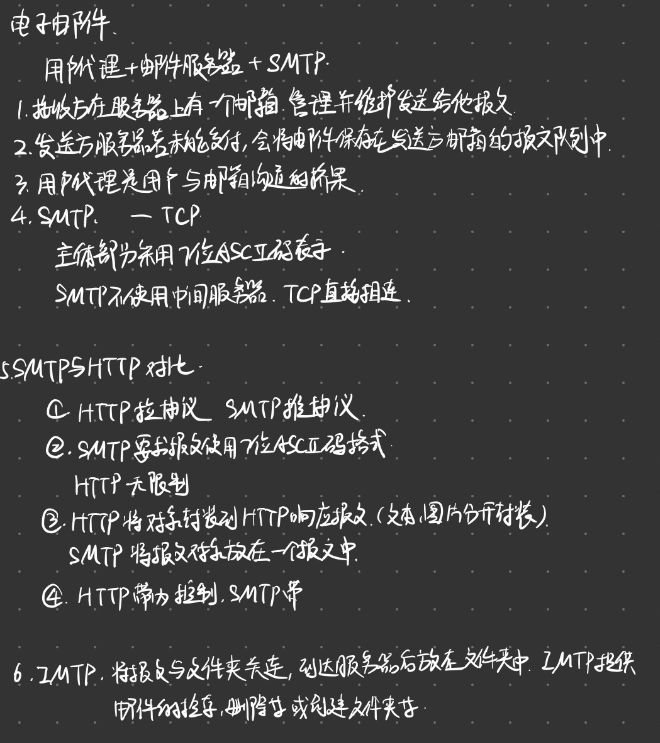 电子邮件.
用户代理+邮件服务器+SMTP.
1.接收方在服务器上有一个邮箱.管理并维护发送给他报文
2.发送方服务器若未能交付,会将邮件保存在发送方邮箱的报文队列中.
3.用户代理是用户与邮箱沟通的桥梁.
4.SMTP. — TCP.
主体部分采用7位ASCII码表示.
SMTP不使用中间服务器.TCP直接相连.
5.SMTP与HTTP对比.
① HTTP拉协议 SMTP推协议.
②.SMTP要求报文使用7位ASCII码格式.
HTTP无限制
③.HTTP将对象封装到HTTP响应报文.(文本,图片分开封装)
SMTP将报文对象放在一个报文中.
④.HTTP带内控制.SMTP带
6.IMTP.将报文与文件夹关连,到达服务器后放在文件夹中.IMTP提供
邮件的检存,删除等或创建文件夹等.